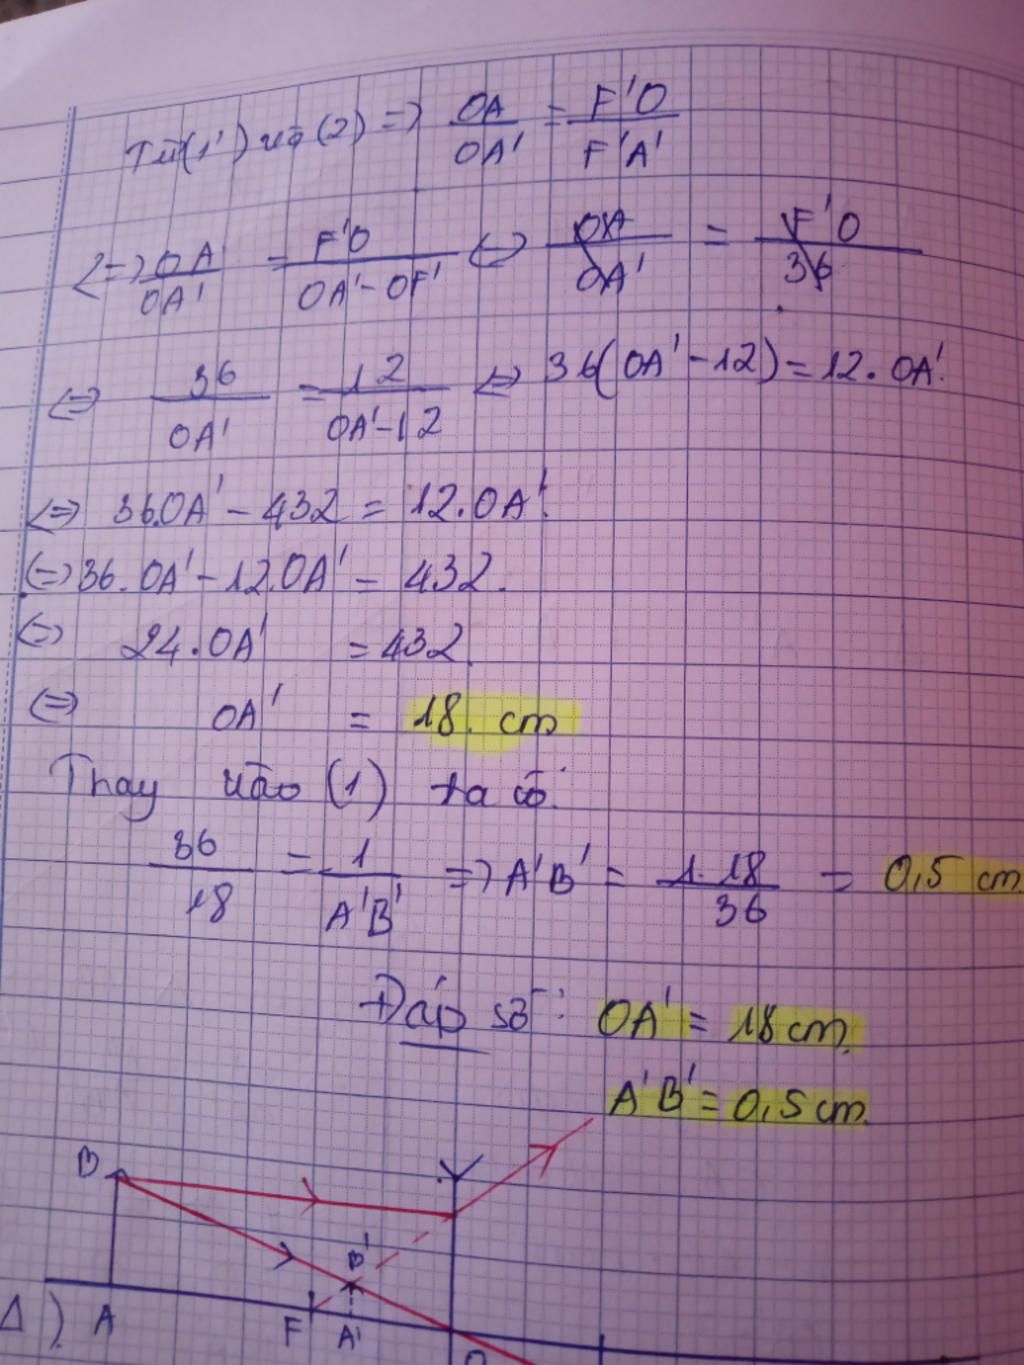 Từ (1') và (2) => OA/OA' = F'O/F'A'
<=> OA/OA' = F'O/OA'-OF' <=> OA/OA' = F'O/36
<=> 36/OA' = 12/OA'-12 <=> 36(OA'-12) = 12.OA'
<=> 36.OA' - 432 = 12.OA'
<=> 36.OA' - 12.OA' = 432.
<=> 24.OA' = 432
<=> OA' = 18. cm
Thay vào (1) ta có:
36/18 = 1/A'B' => A'B' = 1.18/36 = 0,5 cm
Đáp số: OA' = 18 cm.
A'B' = 0,5 cm.
B
B'
Δ) A F A' O